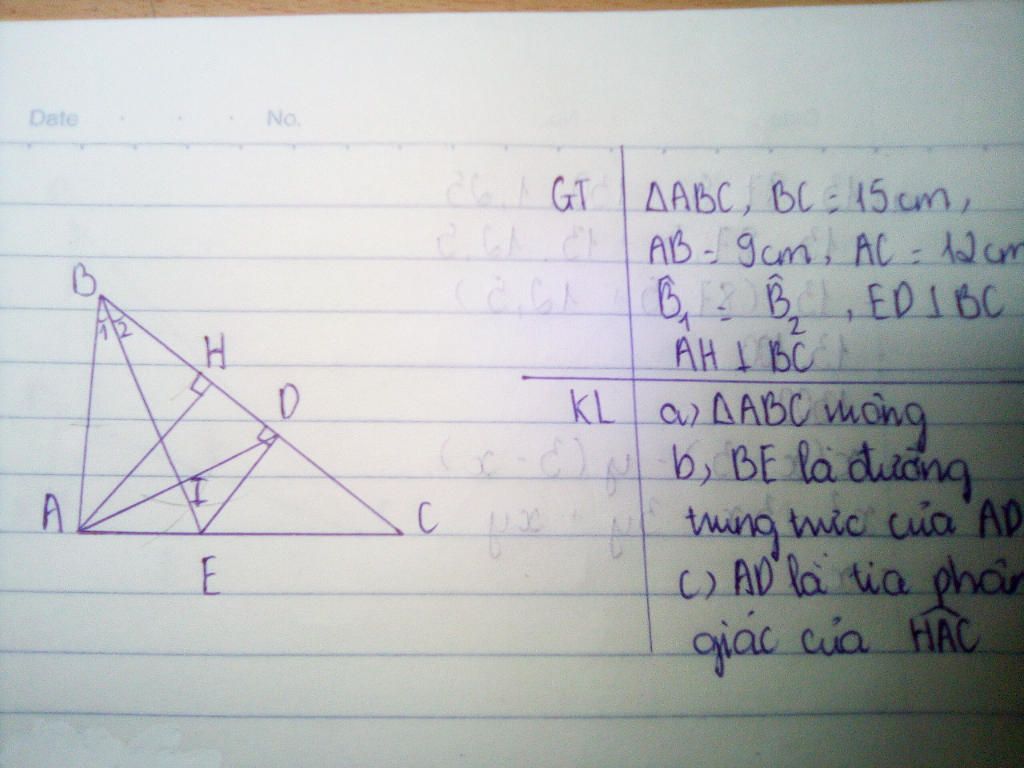 Date No.
GT ΔABC, BC = 15cm,
AB = 9cm, AC = 12cm
B̂₁ = B̂₂, ED ⊥ BC
AH ⊥ BC
KL a) ΔABC vuông
b) BE là đường
trung trực của AD
c) AD là tia phân
giác của HAC
B
1 2
H
D
I
A
C
E